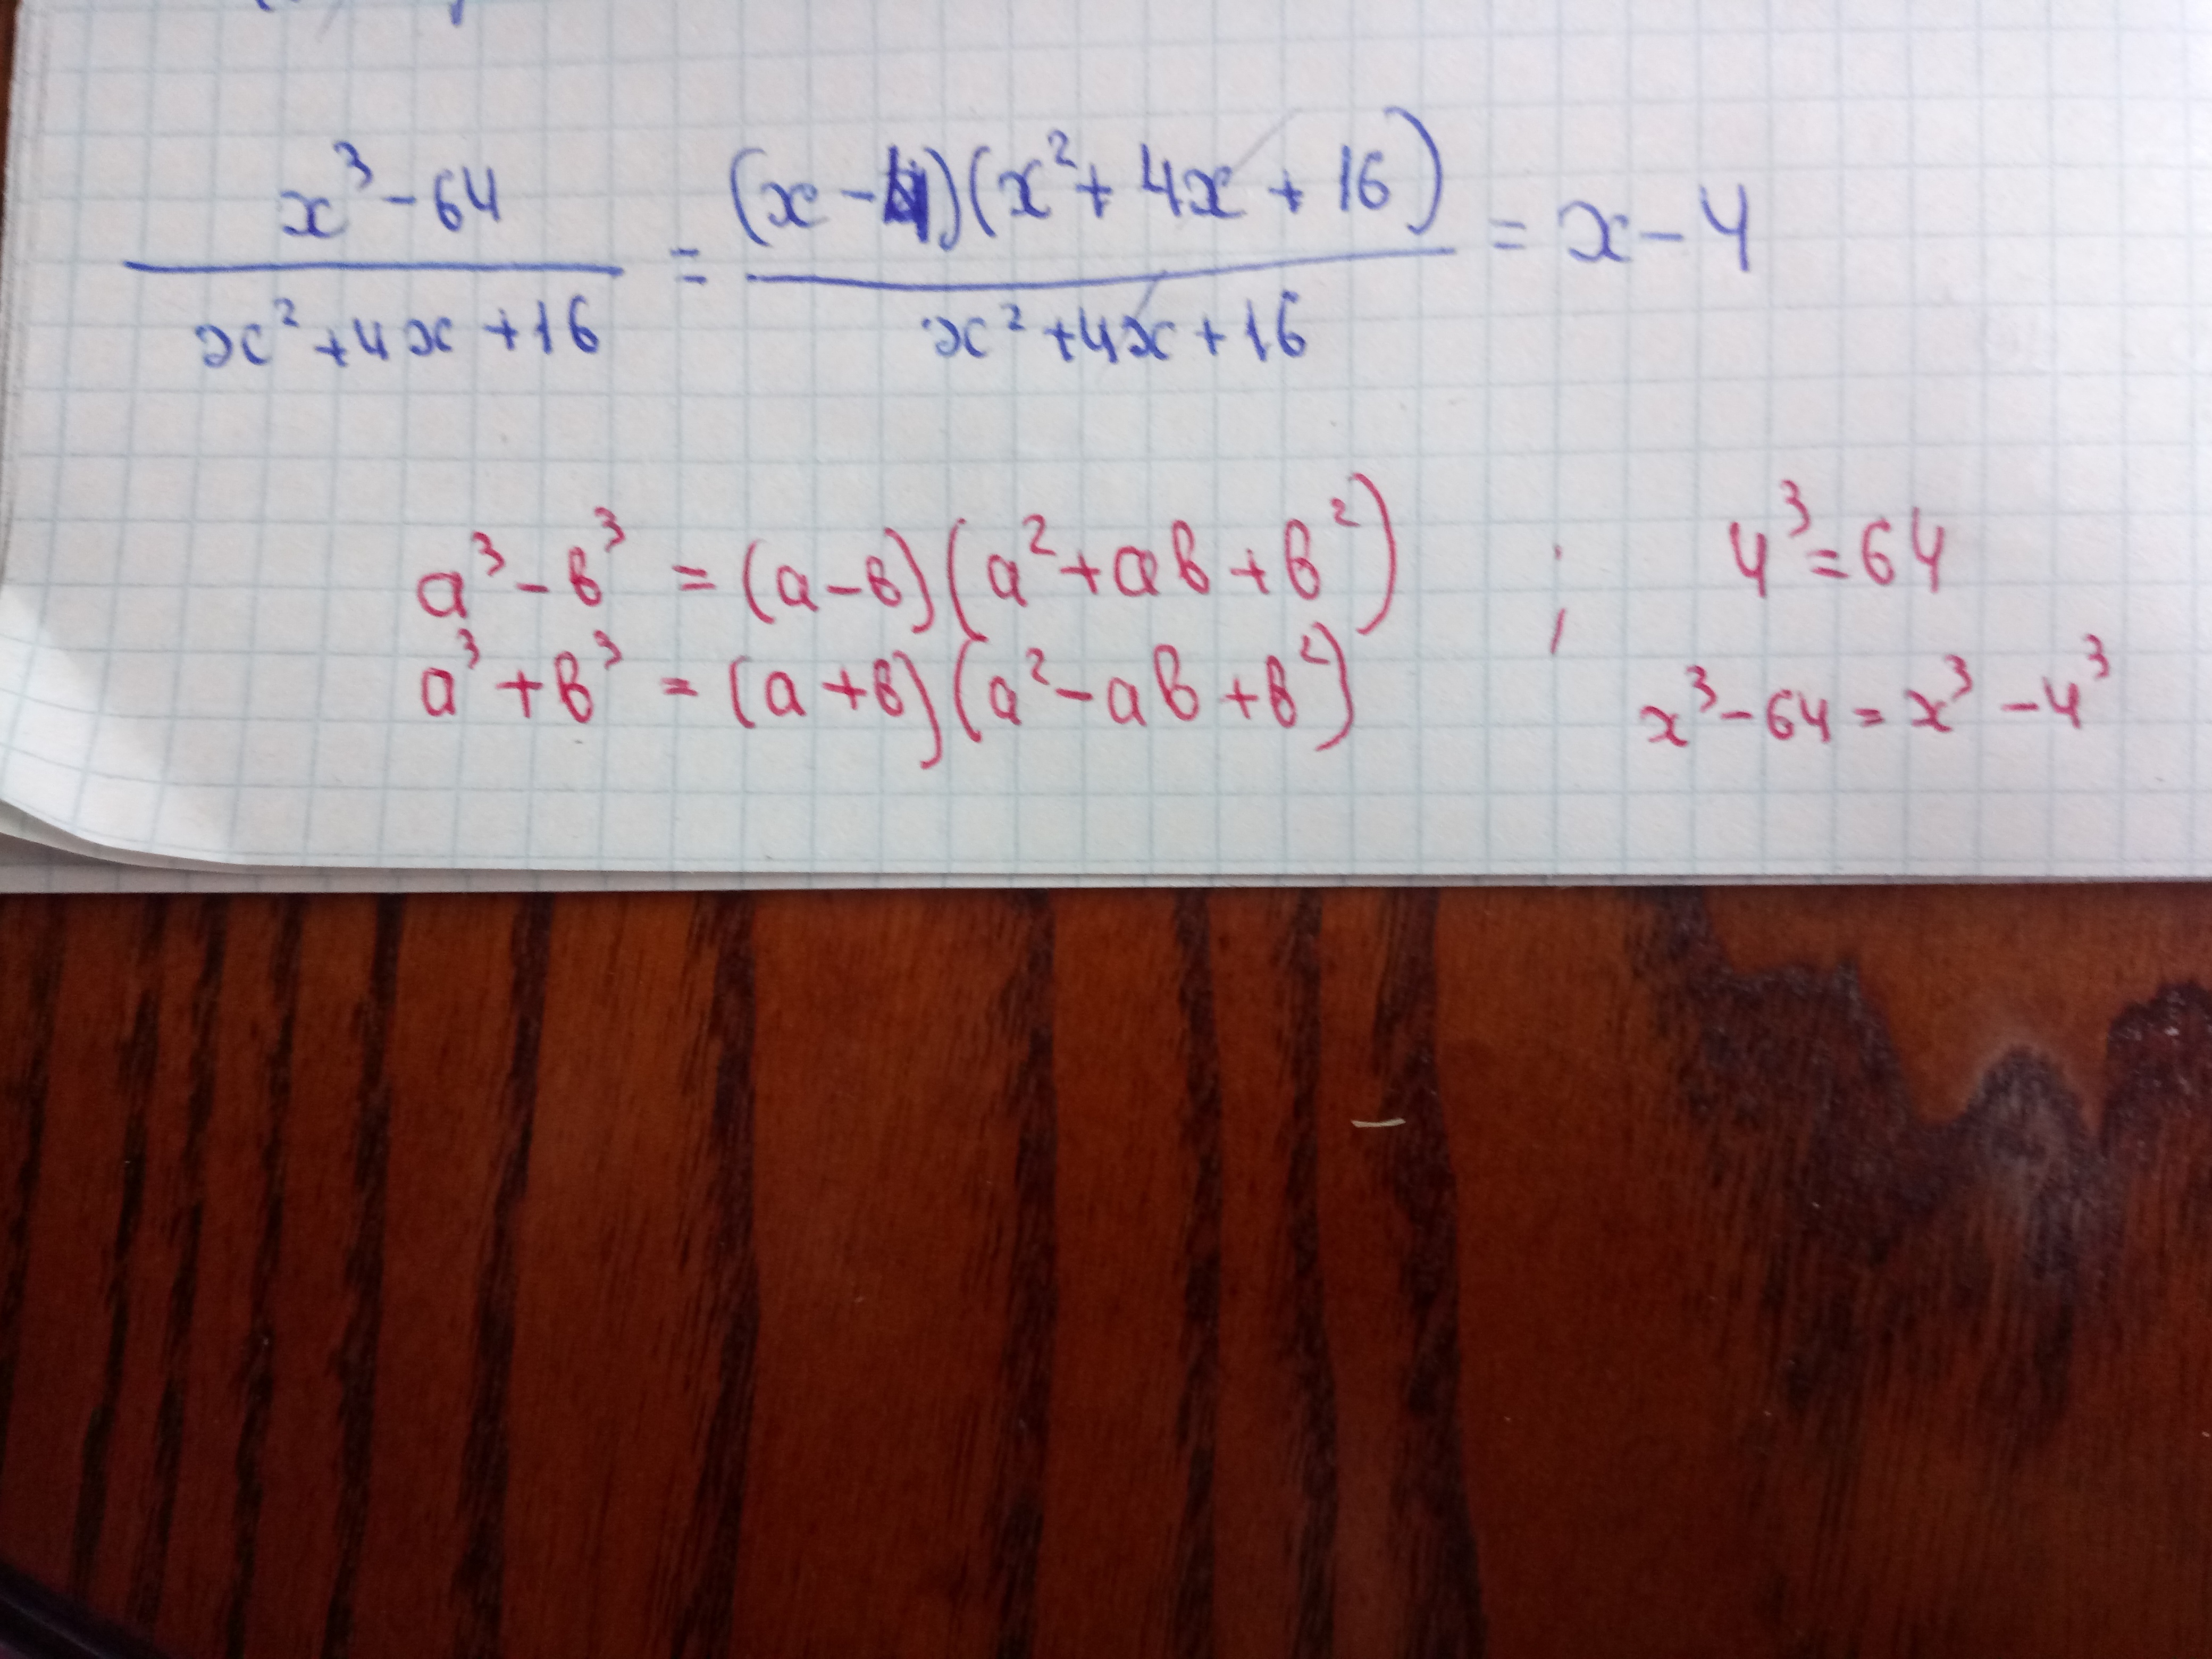 x³ - 64 / x² + 4x + 16 = (x - 4)(x² + 4x + 16) / x² + 4x + 16 = x - 4
a³ - в³ = (a - в)(a² + aв + в²) ; 4³ = 64
a³ + в³ = (a + в)(a² - aв + в²) x³ - 64 = x³ - 4³